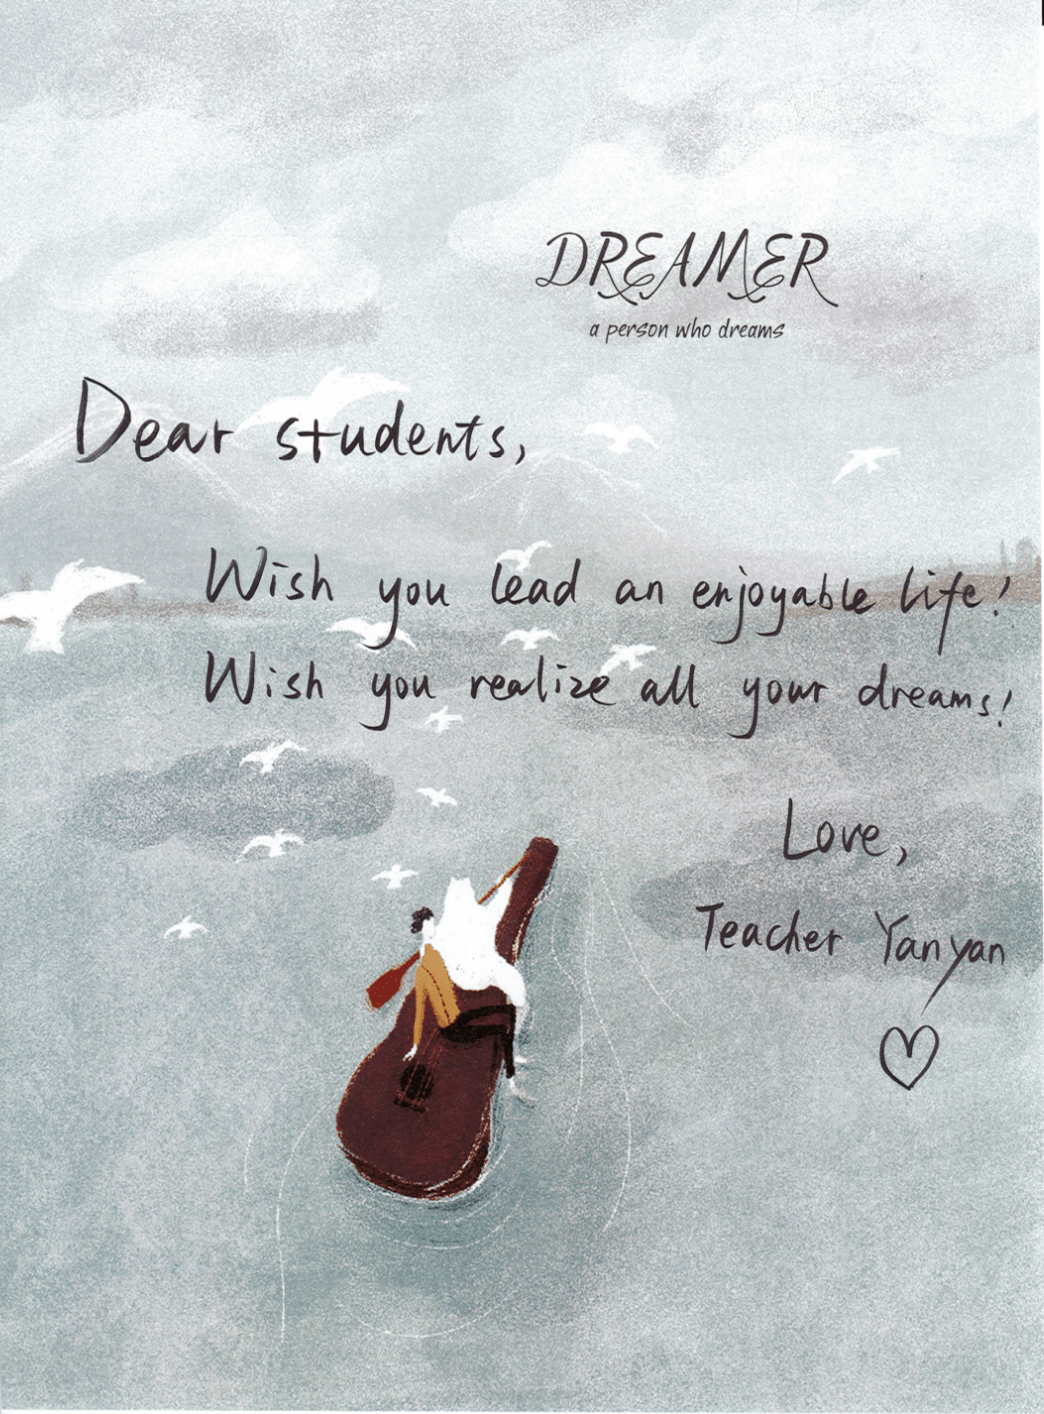 DREAMER
a person who dreams
Dear students,
Wish you lead an enjoyable life!
Wish you realize all your dreams!
Love,
Teacher Yanyan